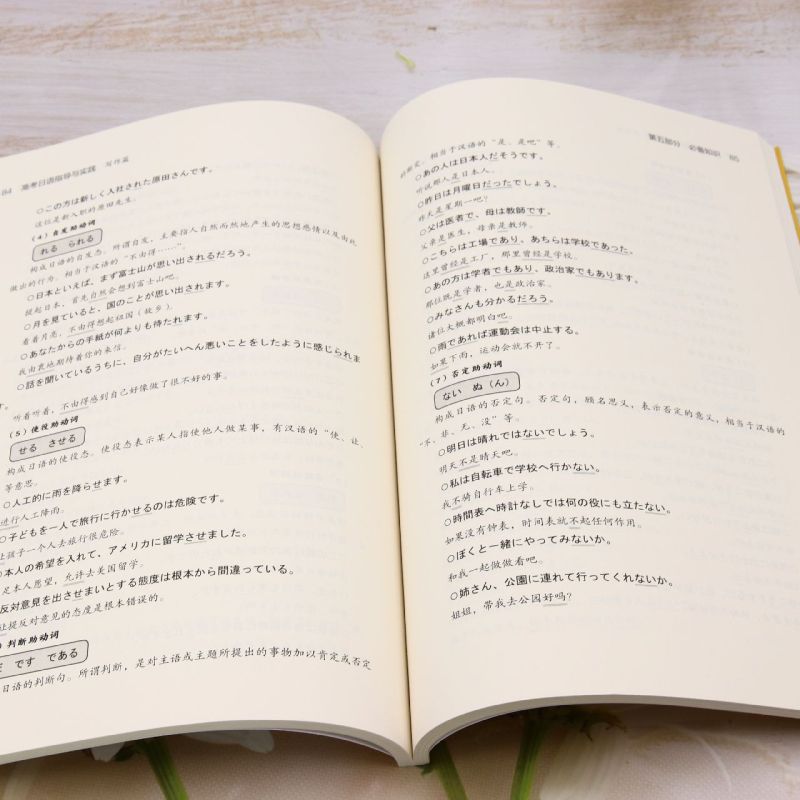 84 高考日语指导与实践 写作篇
○この方は新しく入社された原田さんです。
这位是新入职的原田先生。
（4）自发助动词
れる られる
构成日语的自发态。所谓自发，主要指人自然而然地产生的思想感情以及由此
做出的行为，相当于汉语的“不由得……”。
○日本といえば、まず富士山が思い出されるだろう。
提起日本，首先自然会想到富士山吧。
○月を見ていると、国のことが思い出されます。
看着月亮，不由得想起祖国（故乡）。
○あなたからの手紙が何よりも待たれます。
我由衷地期待着你的来信。
○話を聞いているうちに、自分がたいへん悪いことをしたように感じられま
す。
听着听着，不由得感到自己好像做了很不好的事。
（5）使役助动词
せる させる
构成日语的使役态。使役态表示某人指使他人做某事，有汉语的“使、让、
等意思。
○人工的に雨を降らせます。
进行人工降雨。
○子どもを一人で旅行に行かせるのは危険です。
让孩子一个人去旅行很危险。
本人の希望を入れて、アメリカに留学させました。
足本人愿望，允许去美国留学。
反対意見を出させまいとする態度は根本から間違っている。
让提反对意见的态度是根本错误的。
）判断助动词
です である
日语的判断句。所谓判断，是对主语或主题所提出的事物加以肯定或否定
第五部分 必备知识 85
的断定，相当于汉语的“是、是吧”等。
○あの人は日本人だそうです。
听说那人是日本人。
○昨日は月曜日だったでしょう。
昨天是星期一吧？
○父は医者で、母は教師です。
父亲是医生，母亲是教师。
○こちらは工場であり、あちらは学校であった。
这里曾经是工厂，那里曾经是学校。
○あの方は学者でもあり、政治家でもあります。
那位既是学者，也是政治家。
○みなさんも分かるだろう。
诸位大概都明白吧。
○雨であれば運動会は中止する。
如果下雨，运动会就不开了。
（7）否定助动词
ない ぬ（ん）
构成日语的否定句。否定句，顾名思义，表示否定的意义，相当于汉语的
“不、非、无、没”等。
○明日は晴れではないでしょう。
明天不是晴天吧。
○私は自転車で学校へ行かない。
我不骑自行车上学。
○時間表へ時計なしでは何の役にも立たない。
如果没有钟表，时间表就不起任何作用。
○ぼくと一緒にやってみないか。
和我一起做做看吧。
○姉さん、公園に連れて行ってくれないか。
姐姐，带我去公园好吗？